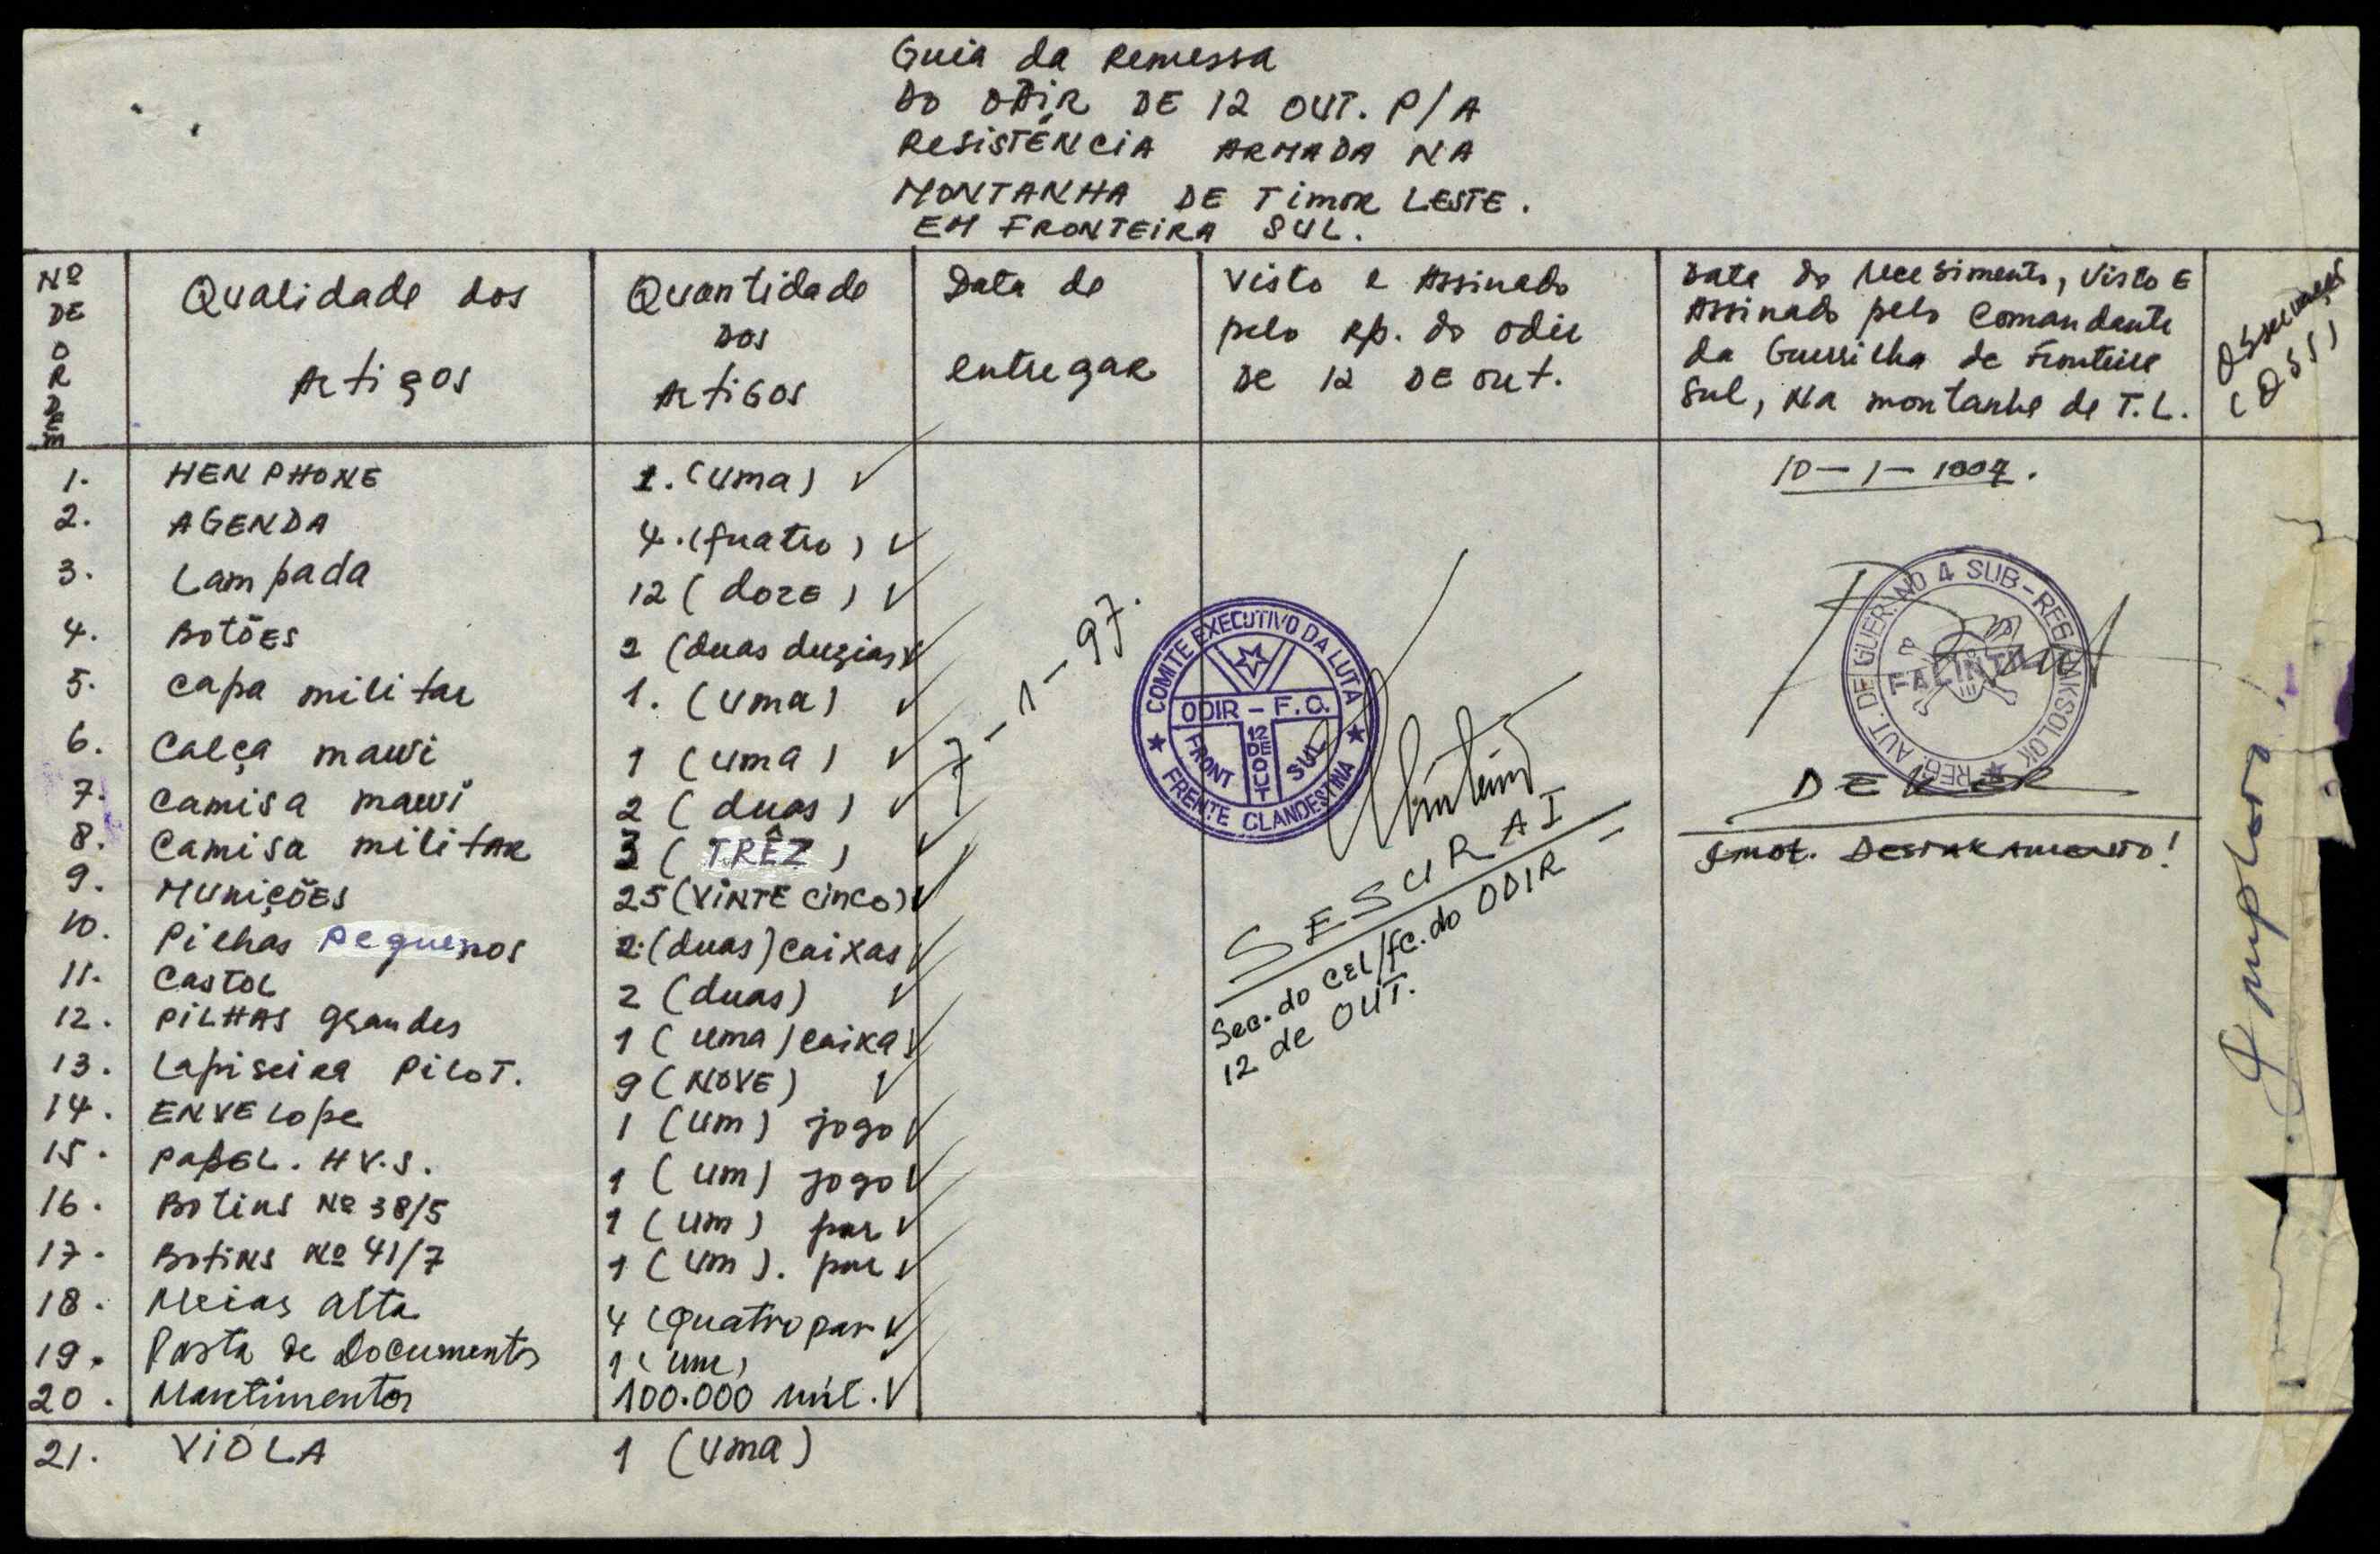 Guia da Remessa
DO ODIR DE 12 OUT. P/A
RESISTÊNCIA ARMADA NA
MONTANHA DE TIMOR LESTE.
EM FRONTEIRA SUL.
Nº DE ORDEM
Qualidade dos Artigos
Quantidade DOS Artigos
Data de entregar
Visto e Assinado pelo Rp. do odir DE 12 DE out.
Data do recebimento, Visto E
Assinado pelo Comandante
da Guerrilha de Fronteira
Sul, Na montanha de T.L.
Observações
(OBS)
1. HENPHONE 1. (uma) ✓
2. AGENDA 4. (quatro) ✓
3. Lampada 12 (doze) ✓
4. BOTÕES 2 (duas duzias) ✓
5. capa militar 1. (uma) ✓
6. calça mawi 1 (uma) ✓
7. camisa mawi 2 (duas) ✓
8. camisa militar 3 (TRÊZ) ✓
9. MUNIÇÕES 25 (VINTE CINCO) ✓
10. Pilhas pequenos 2. (duas) caixas ✓
11. CASTOL 2 (duas) ✓
12. PILHAS grandes 1 (uma) caixa ✓
13. Lapiseira PILOT. 9 (NOVE) ✓
14. ENVELope 1 (um) jogo ✓
15. PAPEL. H V.S. 1 (um) jogo ✓
16. Botins Nº 38/5 1 (um) par ✓
17. Botins Nº 41/7 1 (um). par ✓
18. Meias alta 4 (quatro par ✓
19. Pasta de Documentos 1 (um)
20. Mantimentos 100.000 mil. ✓
21. VIOLA 1 (uma)
7-1-97.
COMITE EXECUTIVO DA LUTA
ODIR - F.C.
FRONT 12 DE OUT SUL
FRENTE CLANDESTINA
SESURAI
Sec. do CEL/FC. do ODIR
12 de OUT.
10-1-1997.
REG. AUT. DE GUER. NO 4 SUB-REG. MANIKSOLOK
FALINTIL
DEKER